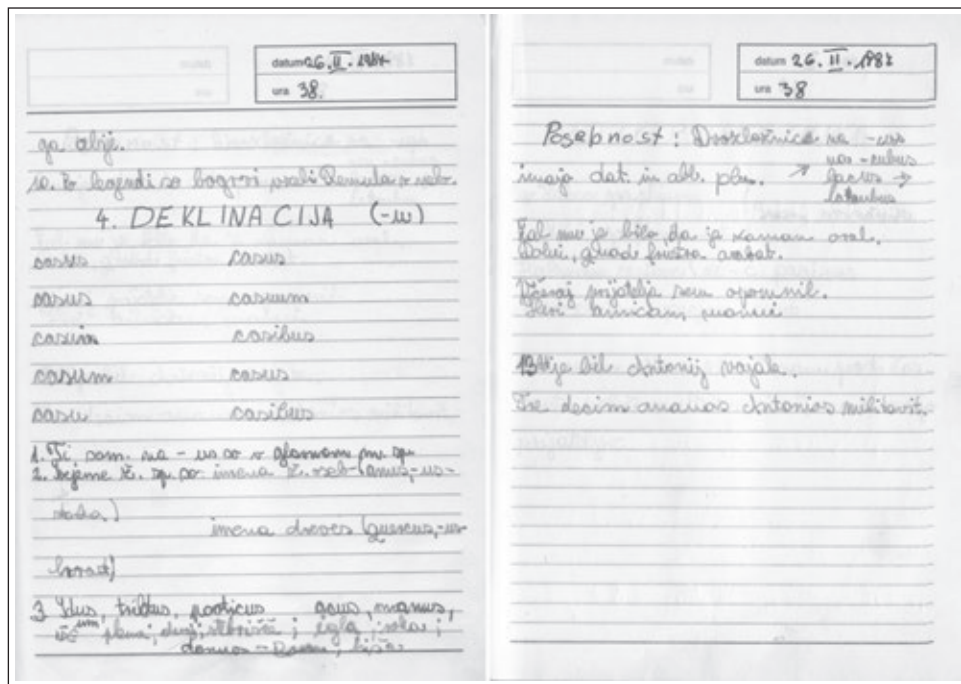 datum 26. II. 1987
ura 38.
ga
so. Po legendi so bogovi vzeli Remula v nebo.
4. DEKLINACIJA (-u)
casus casus
casus casuum
casui casibus
casum casus
casu casibus
1. Ti sam. na -us so v glavnem m. sp.
2. Izjeme ž. sp. so imena ž. oseb (anus, -us-
imena dreves (quercus, -us-
hrast)
3. Idus, tribus, porticus acus, manus,
igla, roka;
domus -
datum 26. II. 1987
ura 38
Posebnost: Dvozložnice na -cus
imajo dat. in abl. plu. → -ubus
lacus →
lacubus
Žal mu je bilo, da je zaman oral.
Dolui, quod frustra arabat.
Včeraj prijatelja sem opomnil.
Heri amicum monui
13 let je bil Antonij vojak.
Tre decim annos Antonios militavit.